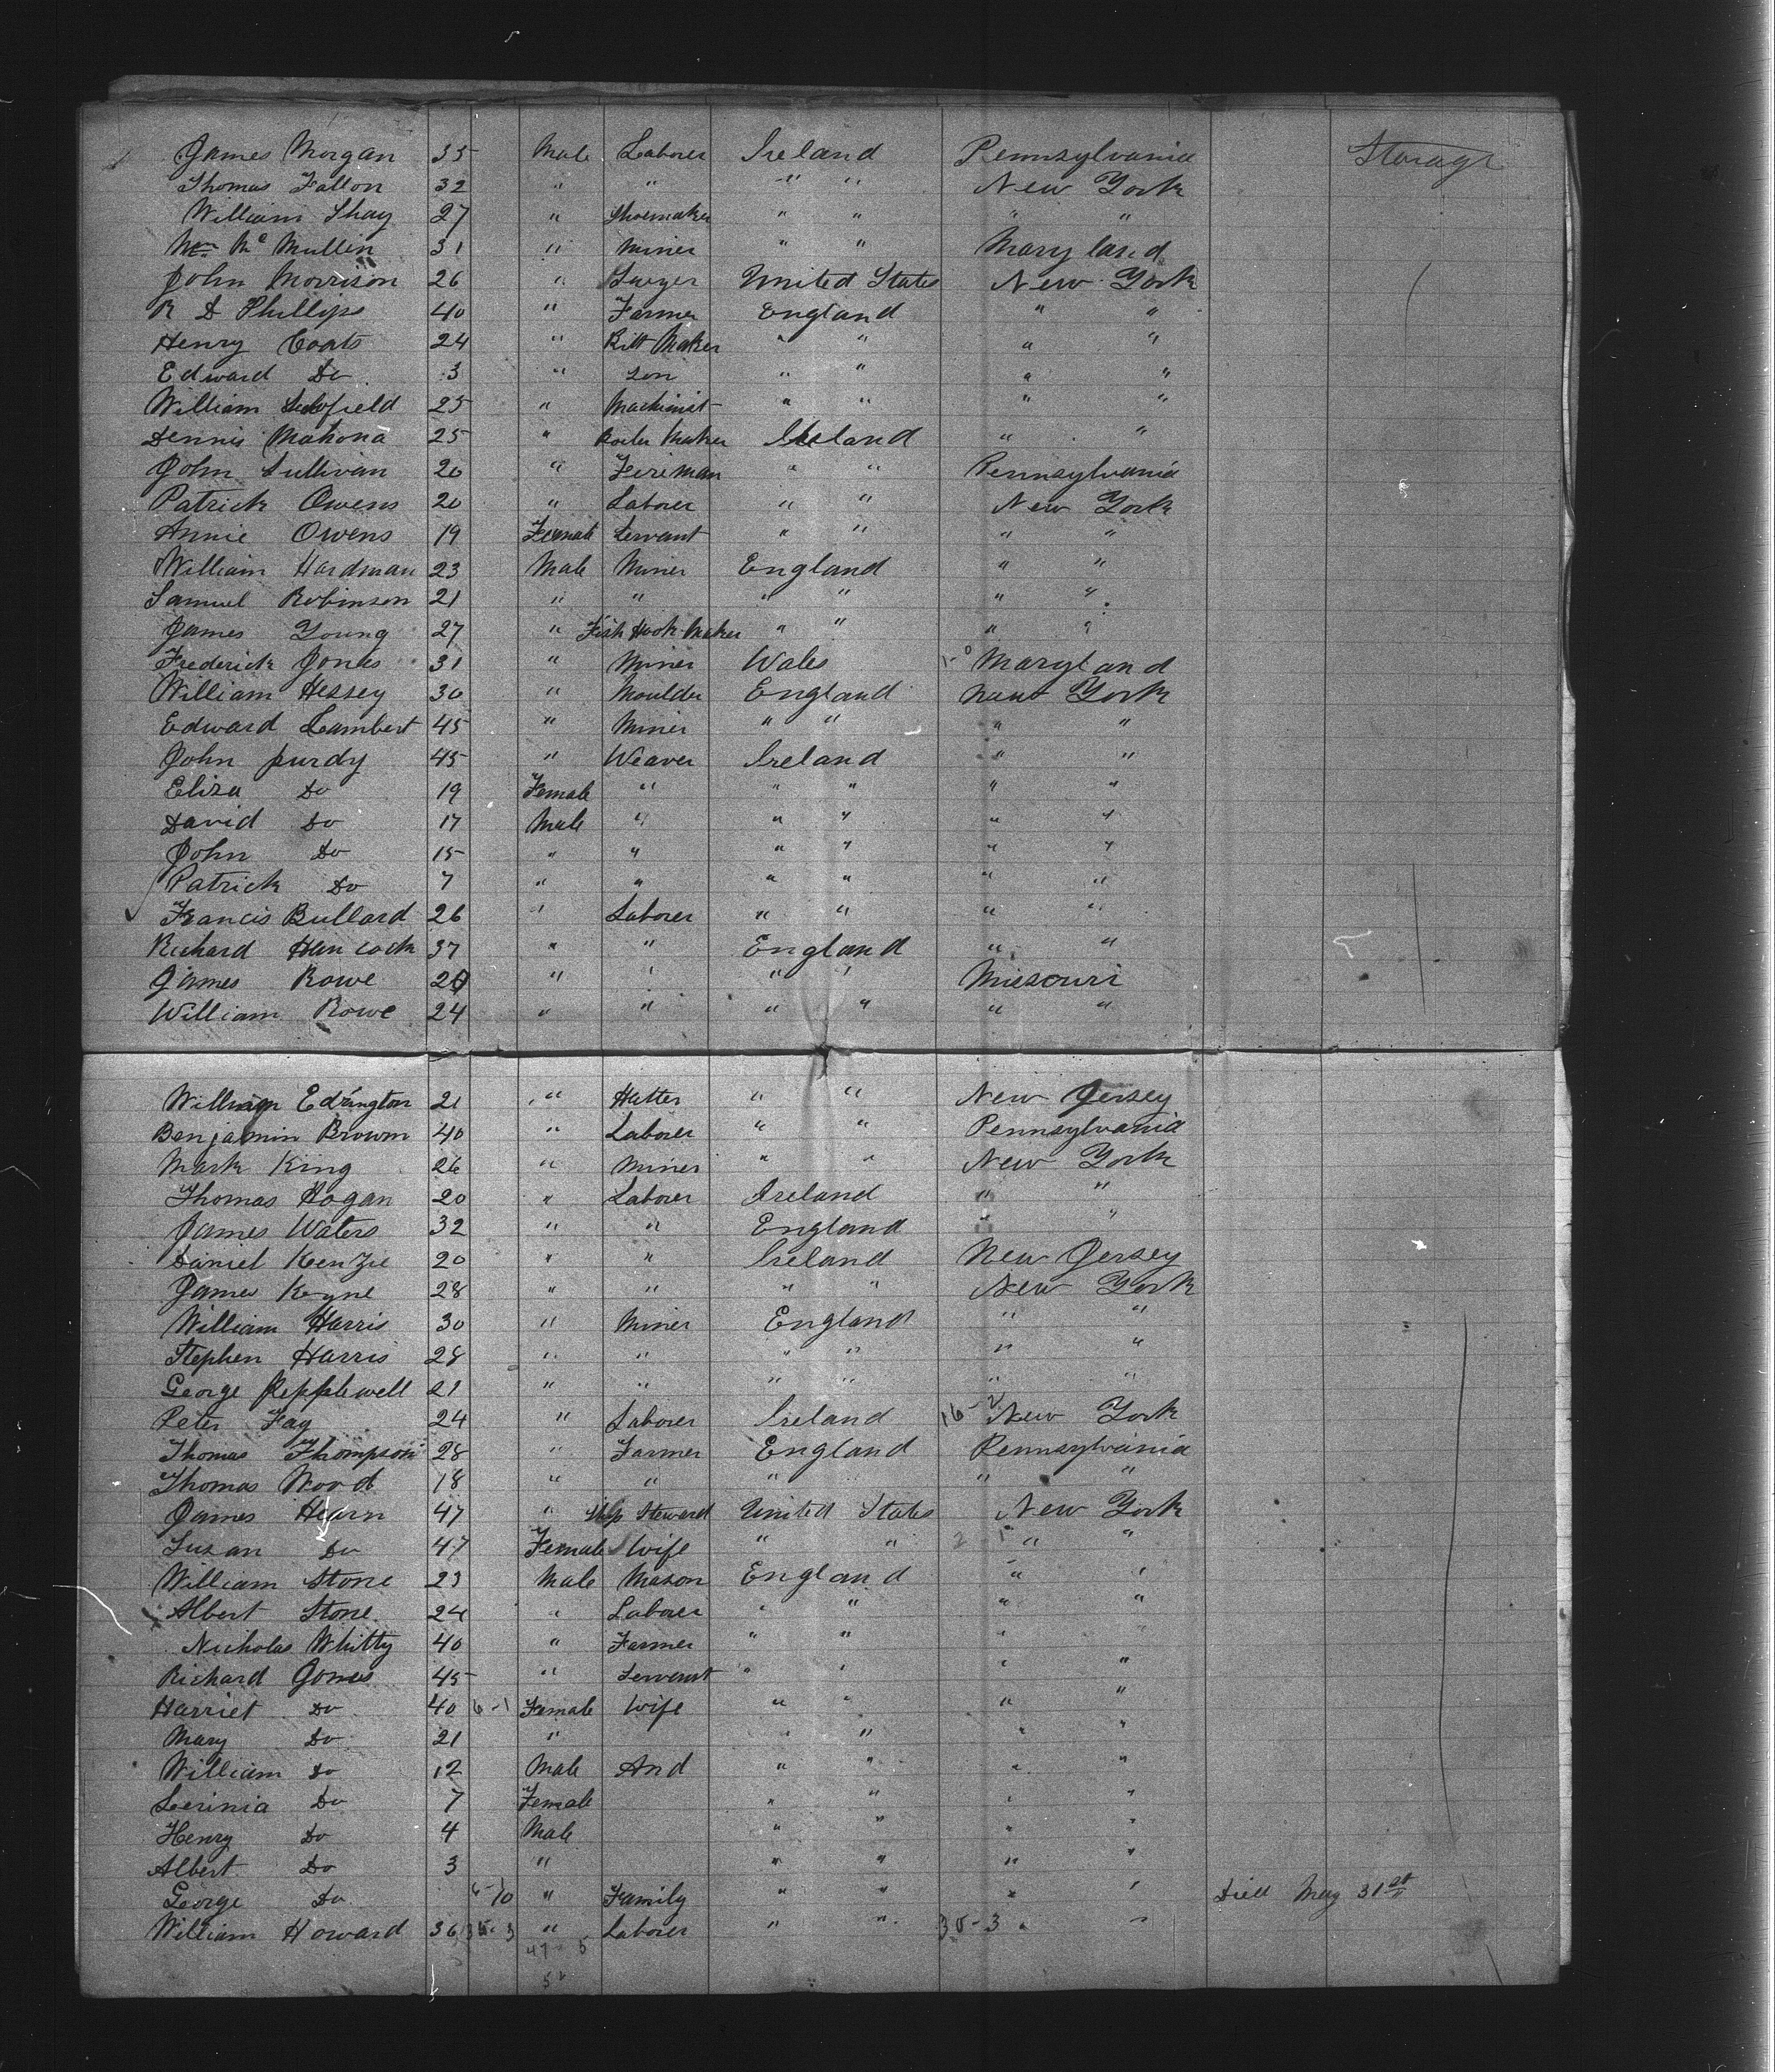 James Morgan 35 Male Laborer Ireland Pennsylvania Storage
Thomas Fallon 32 " " " " New York
William Shay 27 " Shoemaker " " " "
Wm Mc Mullin 31 " Miner " " Maryland
John Morrison 26 " United States New York
R D Phillips 40 " Farmer England " "
Henry Coats 24 " Maker " " " "
Edward Do 3 " Son " " " "
William 25 " Machinist " " " "
Dennis Mahona 25 " Boiler Maker Ireland " "
John Sullivan 20 " Fireman " " Pennsylvania
Patrick Owens 20 " Laborer " " New York
Annie Owens 19 Female Servant " " " "
William Hardman 23 Male Miner England " "
Samuel Robinson 21 " " " " " "
James Young 27 " Fish Hook Maker " " " "
Frederick Jones 31 " Miner Wales 1-0 Maryland
William Hessey 30 " Moulder England New York
Edward Lambert 45 " Miner " " " "
John purdy 45 " Weaver Ireland " "
Eliza Do 19 Female " " " " "
David Do 17 Male " " " " "
John Do 15 " " " " " "
Patrick Do 7 " " " " " "
Francis Bullard 26 " Laborer " " " "
Richard Hancock 37 " " England " "
James Rowe 20 " " " " Missouri
William Rowe 24 " " " " " "
William Edrington 21 " Hatter " " New Jersey
Benjamin Brown 40 " Laborer " " Pennsylvania
Mark King 26 " Miner " " New York
Thomas Hogan 20 " Laborer Ireland " "
James Waters 32 " " England " "
Daniel Kenzie 20 " " Ireland New Jersey
James Keyne 28 " " " " New York
William Harris 30 " Miner England " "
Stephen Harris 28 " " " " " "
George Repplewell 21 " " " " " "
Peter Fay 24 " Laborer Ireland 16-2 New York
Thomas Thompson 28 " Farmer England Pennsylvania
Thomas Wood 18 " " " " " "
James Hearn 47 " Ship Steward United States New York
Susan Do 47 Female Wife " " 2 1 " "
William Stone 23 Male Mason England " "
Albert Stone 24 " Laborer " " " "
Nicholas Whitty 40 " Farmer " " " "
Richard Jones 45 " Servant " " " "
Harriet Do 40 6-1 Female Wife " " " "
Mary Do 21 " " " " "
William Do 12 Male And " " " "
Lerinia Do 7 Female " " " "
Henry Do 4 Male " " " "
Albert Do 3 " " " " "
George Do 10 " Family " " " " Died May 31st
William Howard 36 " Laborer " " 35-3 " "
47 5